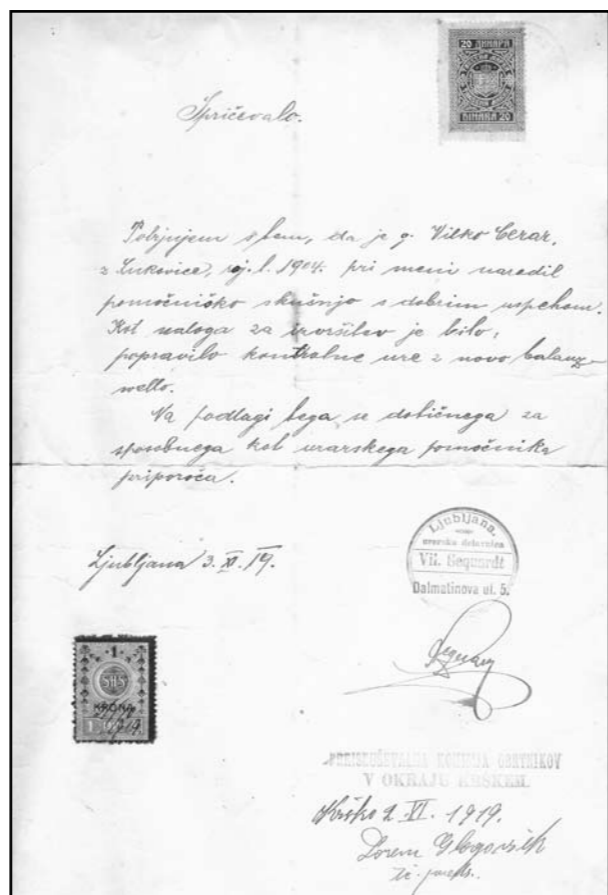 20 ДИНАРА
DINARA 20
Spričevalo.
Potrjujem s tem, da je g. Vilko Cerar,
z Lukovice, roj. l. 1904. pri meni naredil
pomočniško skušnjo s dobrim uspehom.
Kot naloga za izvršitev je bilo,
popravilo kontrolne ure z novo balanz-
wello.
Na podlagi tega se dotičnega za
sposobnega kot urarskega pomočnika
priporoča.
Ljubljana 3. XI. 19.
Ljubljana.
urarska delavnica
Vil. Sequardt
Dalmatinova ul. 5.
1
SHS
KRONA
1919.
KOMISIJA OBRTNIKOV
V OKRAJU KRŠKEM.
Krško 2. VI. 1919.